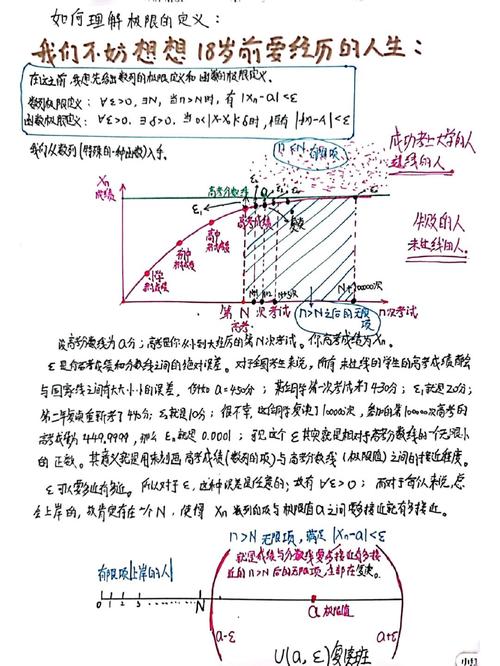 如何理解极限的定义:
我们不妨想想18岁前要经历的人生:
在这之前,我想先给出数列的极限定义和函数的极限定义.
数列极限定义: ∀ε>0, ∃N, 当n>N时, 有|Xn-a|<ε
函数极限定义: ∀ε>0, ∃δ>0, 当0<|X-X0|<δ时, 恒有|f(x)-A|<ε
我们从数列(特殊的一种函数)入手.
Xn
成绩
高考分数线
n<N 有限项
成功考上大学的人
过线的人.
失败的人
未过线的人.
ε1
高考成绩
复读
高中
初中
小学
第N次考试
高考
N+10000次
n次考试
n>N之后的无限项
设高考分数线为a分;高考是你从小到大经历的第N次考试。你高考成绩为Xn.
ε是你高考成绩和分数线之间的绝对误差。对于全国考生来说,所有未过线的学生的高考成绩都会
与国家线之间有大大小小的误差,例如a=450分;某同学第一次考试考了430分;ε1就是20分;
第二年复读重新考了440分;ε2就是10分;很不幸,这位同学复读了10000次,参加的第10000次高考的
高考成绩为449.9999,那么ε就是0.0001;所以这个ε其实就是相对于高考分数线的一个无限小
的正数。其意义就是用来刻画高考成绩(数列的项)与高考分数线(极限值)之间的接近程度。
ε可以要多近有多近。所以对于ε,这种误差是任意的;故有∀ε>0;而对于
上岸的,故肯定存在一个N,使得Xn数列的项与极限值a之间要多接近就有多接近。
n>N无限项,满足|Xn-a|<ε
就是成绩与分数线要多接近有多接
近的n>N后的无限项,全部在复读.
有限项|上岸的人|
0 1 2 3 N
a 极限值
a-ε
a+ε
U(a,ε)复读班